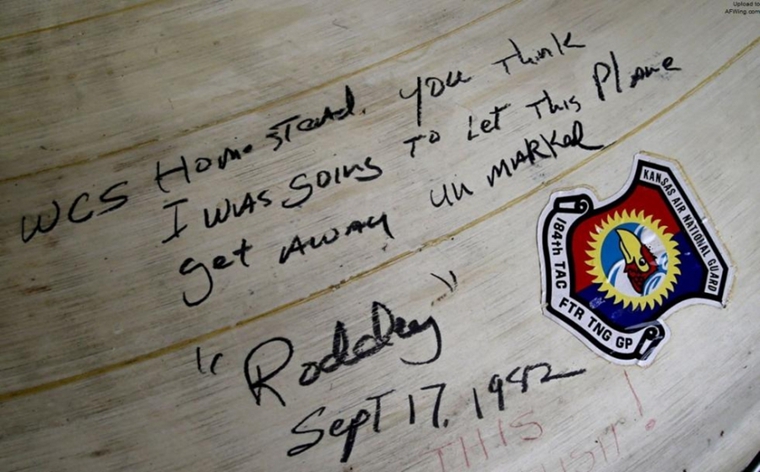 Upload to
AFWing.com
WCS Homestead. You Think
I WAS going To Let This Plane
get AWAY un MARKED
"Roddey"
SepT 17, 1982
KANSAS AIR NATIONAL GUARD
184th TAC FTR TNG GP
THIS
!